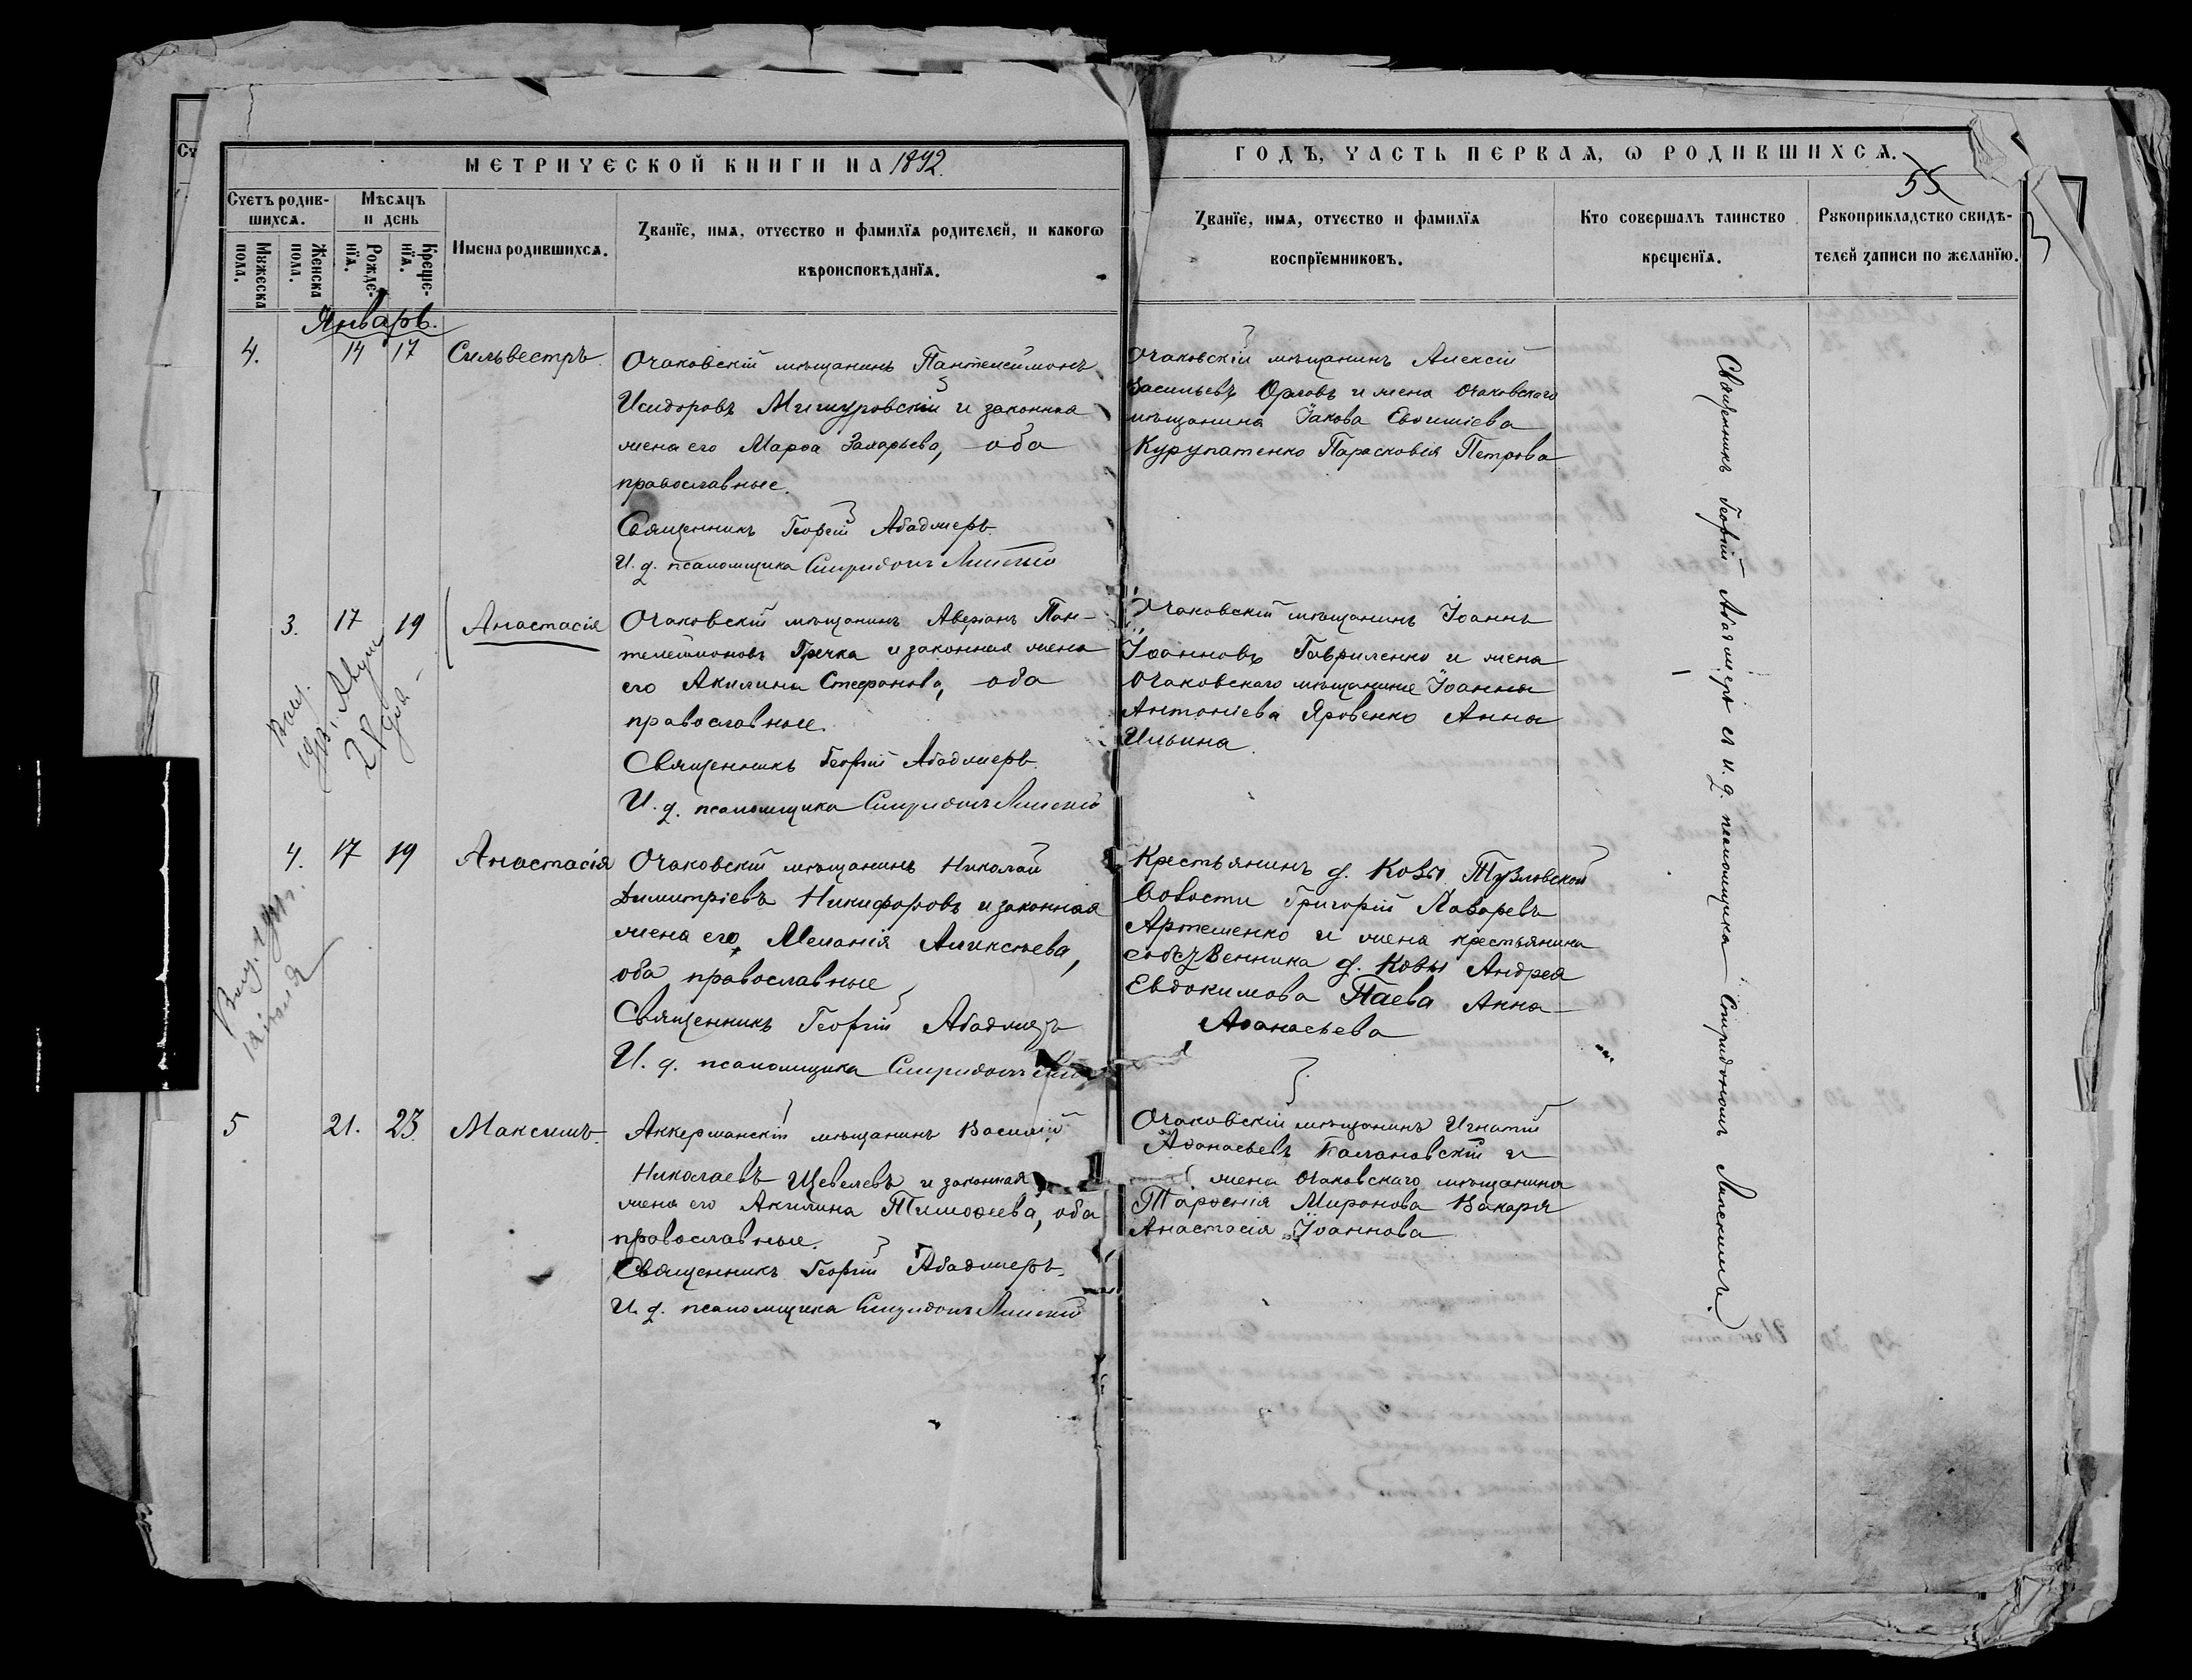 МЕТРИЧЕСКОЙ КНИГИ НА 1892.
ГОДЪ, ЧАСТЬ ПЕРВАѦ, Ѡ РОДИВШИХСѦ.
55
Счетъ родив-
шихсѧ.
Мѣсѧцъ
и день
Мꙋжеска
пола.
Женска
пола.
Рожде-
нїѧ.
Креще-
нїѧ.
Имена родившихсѧ.
Званїе, имѧ, отчество и фамилїѧ родителей, и какогѡ
вѣроисповѣданїѧ.
Званїе, имѧ, отчество и фамилїѧ
воспрїемниковъ.
Кто совершалъ таинство
крещенїѧ.
Рꙋкоприкладство свидѣ-
телей записи по желанїю.
Январь.
4. 14 17 Сильвестръ
Очаковскій мѣщанинъ Пантелеимонъ
Исидоровъ Мишуровскій и законная
жена его Марѳа Захарьева, оба
православные.
Священникъ Георгій Абаджеръ
И. д. псаломщика Спиридонъ Липскій
Очаковскій мѣщанинъ Алексій
Васильевъ Орловъ и жена Очаковскаго
мѣщанина Іакова Евѳиміева
Курупатенко Парасковія Петрова
3. 17 19 Анастасія
Очаковскій мѣщанинъ Аверіанъ Пан-
телеимоновъ Гречка и законная жена
его Акилина Стефанова, оба
православные.
Священникъ Георгій Абаджеръ
И. д. псаломщика Спиридонъ Липскій
Очаковскій мѣщанинъ Іоаннъ
Іоанновъ Гавриленко и жена
Очаковскаго мѣщанина Іоанна
Антоніева Яровенко Анна
Ильина.
4. 17 19 Анастасія
Очаковскій мѣщанинъ Николай
Димитріевъ Никифоровъ и законная
жена его Меланія Алексѣева,
оба православные
Священникъ Георгій Абаджеръ
И. д. псаломщика Спиридонъ
Крестьянинъ д. Ковы Тузловской
Волости Григорій
Артеменко и жена крестьянина
собственника д. Ковы Андрея
Евдокимова Паева Анна
Аѳанасьева
5 21. 23. Максимъ.
Аккерманскій мѣщанинъ Василій
Николаевъ Щевелевъ и законная
жена его Акилина Тимоѳеева, оба
православные.
Священникъ Георгій Абаджеръ.
И. д. псаломщика Спиридонъ Липскій
Очаковскій мѣщанинъ Игнатій
Аѳанасьевъ Балановскій и
жена Очаковскаго мѣщанина
Парѳенія Миронова Вакаря
Анастасія Іоаннова
Священникъ Георгій Абаджеръ съ и. д. псаломщика Спиридономъ Липскимъ.